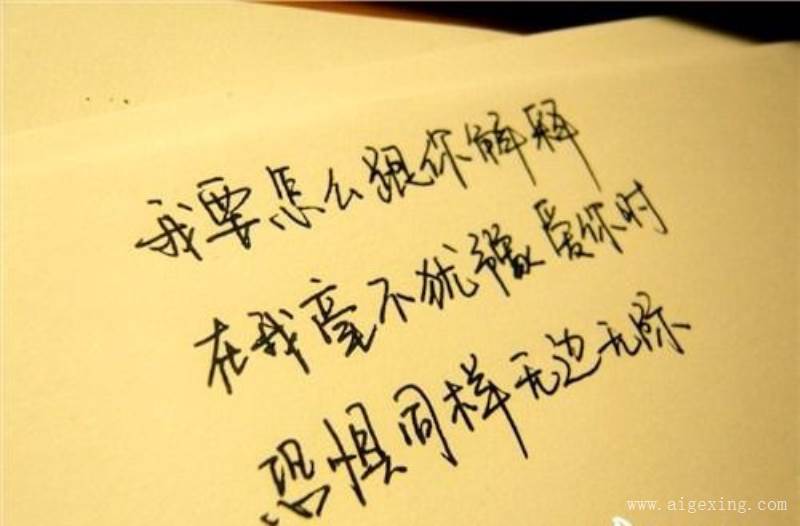 我要怎么跟你解释
在我毫不犹豫爱你时
恐惧同样无边无际
www.aigexing.com